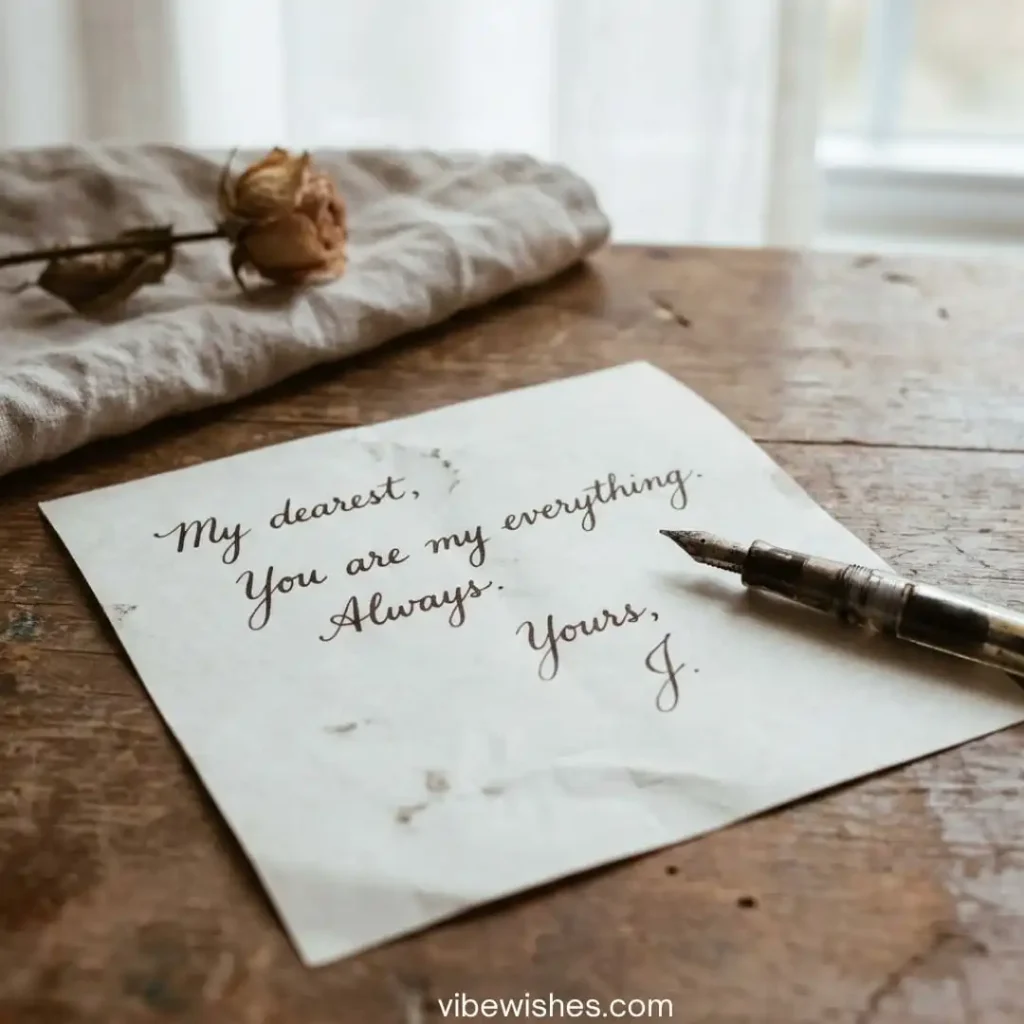 My dearest,
You are my everything.
Always.
Yours,
J.
vibewishes.com